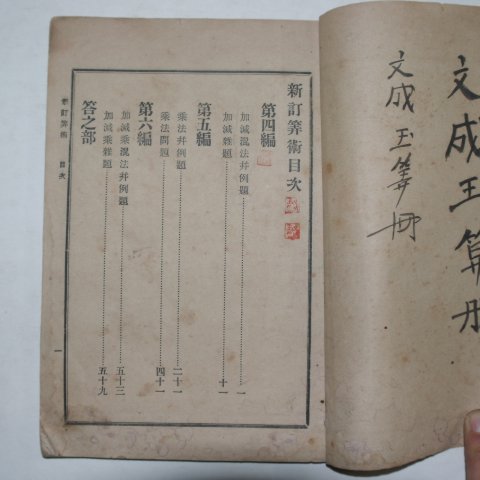 文成玉算册
文成玉筭冊
新訂筭術目次
第四編
加減混法幷例題 一
加減雜題 十一
第五編
乘法幷例題 二十一
乘法問題 四十一
第六編
加減乘混法幷例題 五十三
加減乘雜題 五十九
答之部
新訂筭術 目次 一